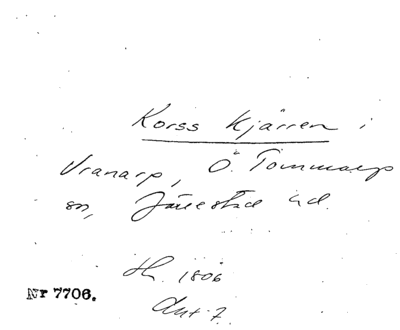 Korss Kjärren i
Vranarp, Ö. Tommarp
sn, Järrestad hd.
1806
Nr 7706.
Akt 7